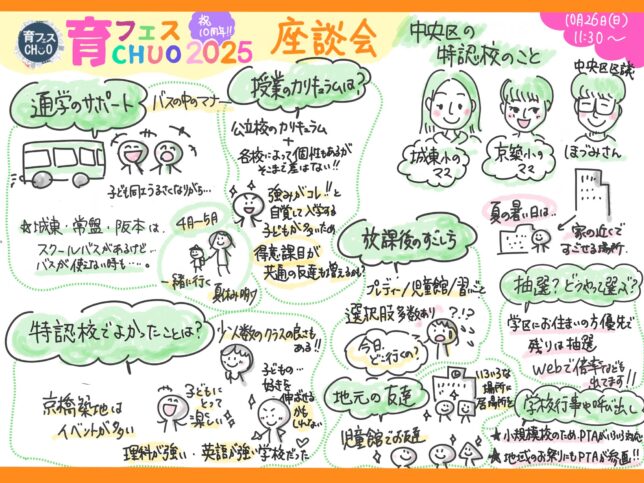 育フェス
CHUO
育フェス
CHUO 2025
祝
10周年!!
座談会
中央区の
特認校のこと
10月26日(日)
11:30〜
城東小の
ママ
京築小の
ママ
中央区区議
ほづみさん
通学のサポート
バスの中のマナー
子ども同士うるさくなりがち…
★城東・常盤・阪本は、
スクールバスがあるけど…
バスが使えない時も……。
4月〜5月
一緒に行く
夏休み明け
授業のカリキュラムは?
公立校のカリキュラム
+
各校によって個性もあるが
そこまで差はない!!
強みがコレ!!と
自覚して入学する
子どもが多いため
得意課目が
共通の友達も増えるかも?
放課後のすごし方
プレディ/児童館/習いごと
選択肢多数あり
?!?
今日、
どこ行くの?
夏の暑い日は…
家の近くで
すごせる場所
抽選?どうやって選ぶ?
学区にお住まいの方優先で
残りは抽選
Webで倍率なども
出てます!!
特認校でよかったことは?
少人数のクラスの良さも
ある!!
京橋築地は
イベントが多い
子どもに
とって
楽しい
子どもの…
好きを
伸ばせる
かも
しんない
理科が強い・英語が強い学校だった
地元の友達
児童館でお友達
いろいろな
場所に
居場所を
学校行事や呼び出し
★小規模校のためPTAが
★地域のお祭りにもPTAが参画!!